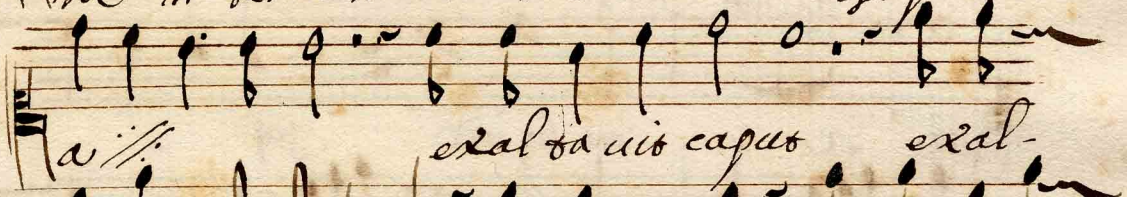 a ij. exaltauit caput exal-